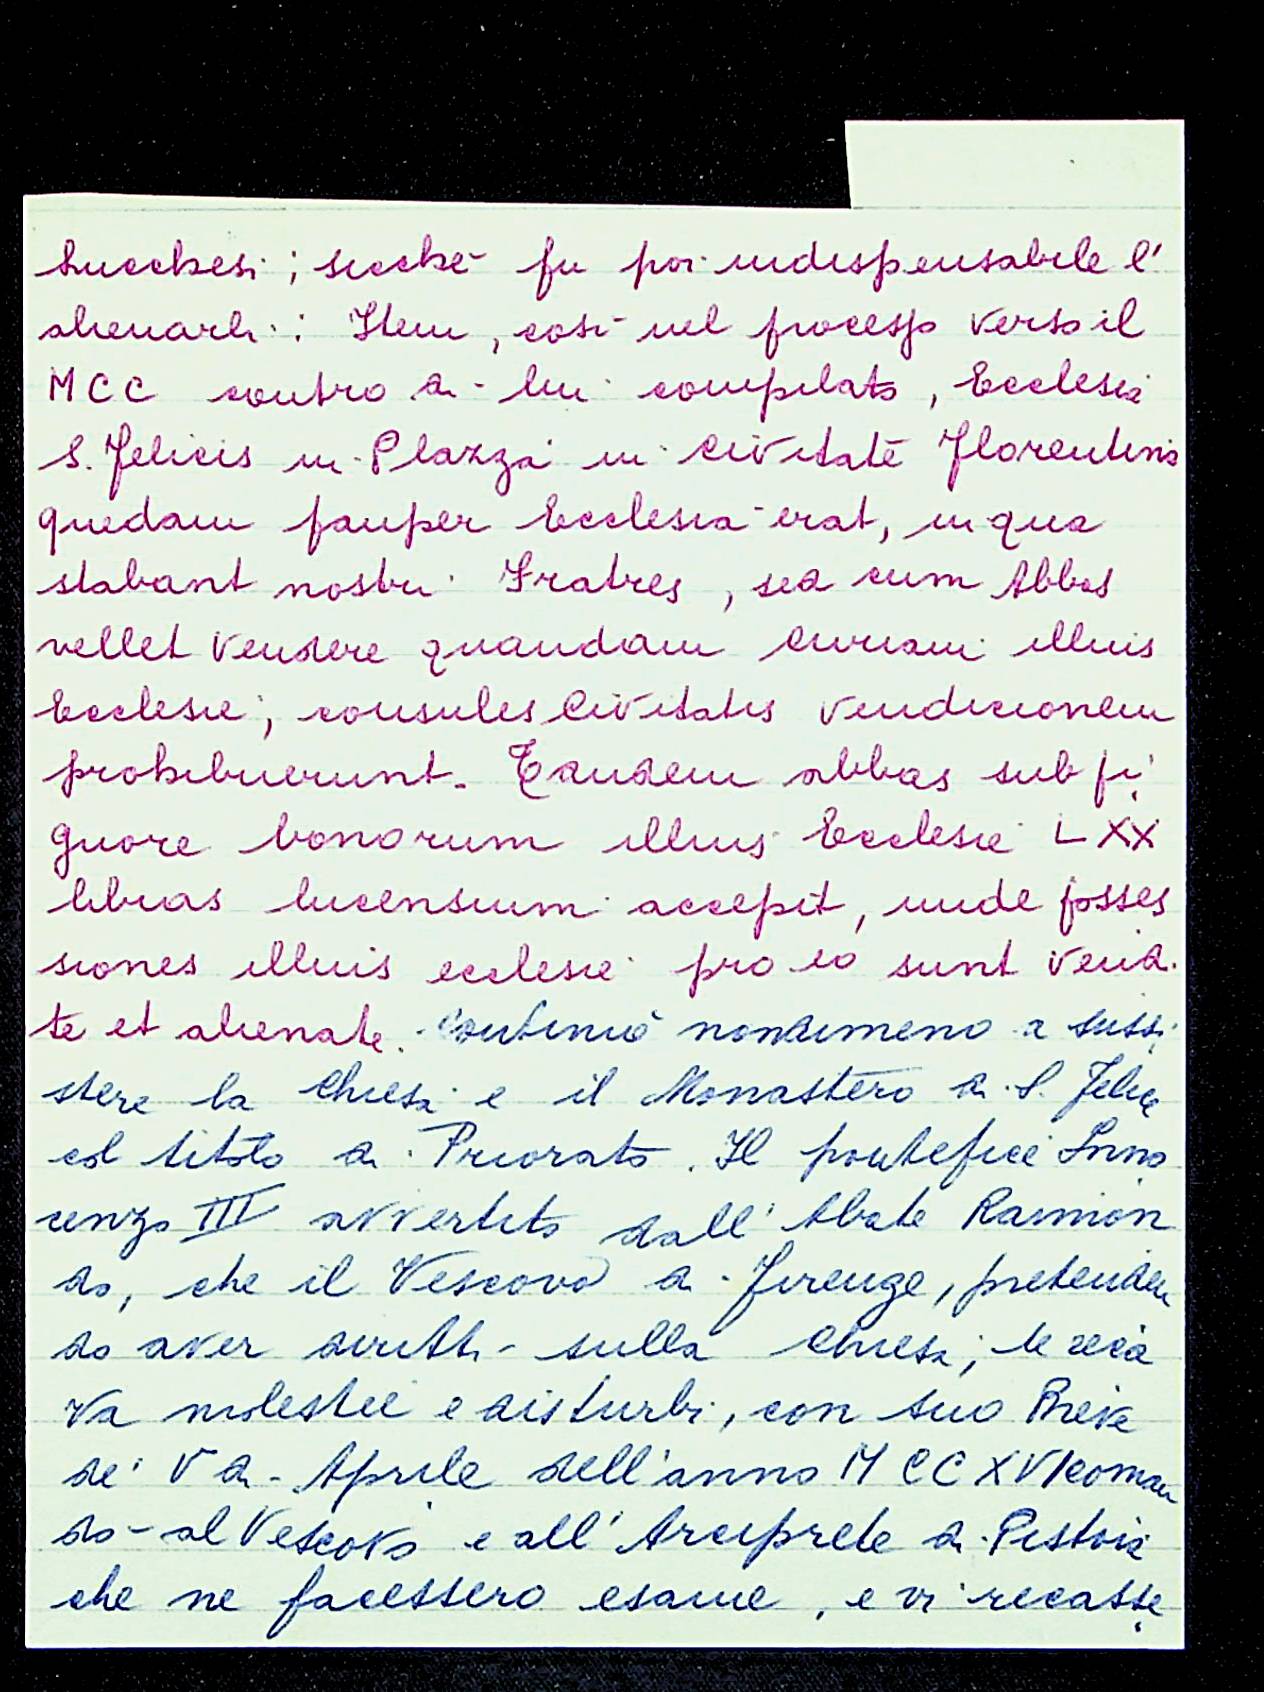 lucchesi; sicché fu poi indispensabile l'
alienarli: Item, così nel processo verso il
MCC contro di lui compilato, Ecclesia
S. Felicis in Plazza in Civitate Florentina
quedam pauper Ecclesia erat, in qua
stabant nostri Fratres, sed cum Abbas
vellet vendere quandam curiam illius
Ecclesie, consules Civitatis vendicionem
prohibuerunt. Tandem abbas sub pi
gnore bonorum illius Ecclesie LXX
libras lucensium accepit, unde posses
siones illius ecclesie pro eo sunt vendi
te et alienate. Continuò nondimeno a sussi
stere la Chiesa e il Monastero di S. Felice
col titolo di Priorato. Il pontefice Inno
cenzo III avvertito dall'Abate Raimon
do, che il Vescovo di Firenze, pretenden
do aver diritti sulla Chiesa, le reca
va molestie e disturbi, con suo Breve
de' V di Aprile dell'anno MCCXVI coman
dò al Vescovo e all'Arciprete di Pistoia
che ne facessero esame, e vi recasse